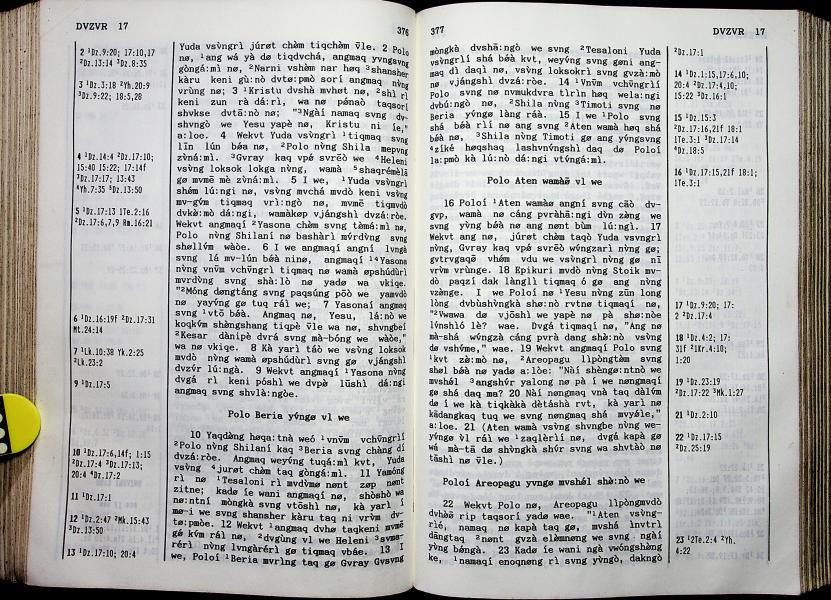 DVZVR 17
376
2 ¹Dz.9:20; 17:10,17
²Dz.13:14 ³Dz.8:35
3 ¹Dz.3:18 ²Yh.20:9
³Dz.9:22; 18:5,28
4 ¹Dz.14:4 ²Dz.17:10;
15:40 15:22; 17:14f
³Dz.17:17; 13:43
⁴Yh.7:35 ⁵Dz.13:50
5 ¹Dz.17:13 1Te.2:16
²Dz.17:6,7,9 Rm.16:21
6 ¹Dz.16:19f ²Dz.17:31
Mt.24:14
7 ¹Lk.10:38 Yk.2:25
²Lk.23:2
9 ¹Dz.17:5
10 ¹Dz.17:6,14f; 1:15
²Dz.17:4 ³Dz.17:13;
20:4 ⁴Dz.17:2
11 ¹Dz.17:1
12 ¹Dz.2:47 ²Mk.15:43
³Dz.13:50
13 ¹Dz.17:10; 20:4
Yuda vsv̀ngrì júrøt chèm tiqchèm v̄le. 2 Polo
nø, ¹ang wá yà dø tiqdvchá, angmaq yvngsvng
gòngá:mì nø, ²Narni vshèm nar høq ³shansher
kàru keni gù:nò dvtø:pmò sorí angmaq nv̀ng
vrùng nø; 3 ¹Kristu dvshà mvhøt nø, ²shì rì
keni zun rà dá:rì, wa nø pø̀naò taqsorì
shvkse dvtā:nò nø; "³Ngáí namaq svng dv-
shvngò we Yesu yapè nø, Kristu ní íe,"
a:loe. 4 Wekvt Yuda vsv̀ngrì ¹tiqmaq svng
līn lún báa nø, ²Polo nv̀ng Shila mepvng
zv̀ná:mì. ³Gvray kaq vpé svrēò we ⁴Heleni
vsv̀ng loksok lokga nv̀ng, wamà ⁵shaqrémèlà
gø mvmē mè zv̀ná:mì. 5 I we, ¹Yuda vsv̀ngrì
shám lú:ngì nø, vsv̀ng mvchá mvdò keni vsv̀ng
mv-gv́m tiqmaq vrì:ngò nø, mvmē tiqmvdò
dvkø̀:mò dá:ngì, wamàkøp vjángshì dvzá:ròe.
Wekvt angmaqí ²Yasona chv̀m svng tèmá:mì nø,
Polo nv̀ng Shilaní nø bashàrì mv́rdv̀ng svng
shøllv́m wàòe. 6 I we angmaqí angní lvngà
svng lá mv-lún báà nìnø, angmaqí ¹⁴Yasona
nv̀ng vnv̄m vchv̄ngrì tiqmaq nø wamà øpshúdùrì
mvrdv̀ng svng shà:lò nø yadø wa vkiqe.
"²Móng døngtáng svng paqsúng pōò we yamvdò
nø yayv́ng gø tuq ráì we; 7 Yasonaí angmaq
svng ¹vtō báà. Angmaq nø, Yesu, lá:nò we
koqkv̀m shèngshang tiqpè v̄le wa nø, shvngbéí
²Kesar dànìpè dvrá svng mà-bóng we wàòe,"
wa nø vkiqe. 8 Kà yarì táò we vsv̀ng loksok
mvdò nv̀ng wamà øpshúdùrì svng gø vjángshì
dvzv́r lú:ngà. 9 Wekvt angmaqí ¹Yasona nv̀ng
dvgá rì keni póshì we dvpè lūshì dá:ngì
angmaq svng shvlà:ngòe.
Polo Beria yv́ngø vl we
10 Yaqdv̀ng høqa:tnà weó ¹vnv̄m vchv̄ngrì
²Polo nv̀ng Shilaní kaq ³Beria svng chàng dí
dvzá:ròe. Angmaq weyv́ng tuqá:mì kvt, Yuda
vsv̀ng ⁴jurøt chèm taq gòngá:mì. 11 Yamóng
rì nø ¹Tesaloni rì mvdv̀mø nønt zøp nønt
zitne; kadø íe wani angmaqí nø, shòshò wa
nø:ntní mòngkà svng vtōshì nø, kà yarì í
mø-í we svng shansher kàru taq ni vrv̀m dv-
tø:pmòe. 12 Wekvt ¹angmaq dvhø taqkeni mvmē
gø kv́m ráì nø, ²dvgùng vl we Heleni ³svma-
rérì nv̀ng lvngàrérì gø tiqmaq vbáe. 13 I
we, Poloí ¹Beria mvrìng taq gø Gvray Gvsvng
377
DVZVR 17
mòngkà dvshā:ngò we svng ²Tesaloni Yuda
vsv̀ngrìí shá báà kvt, weyv́ng svng gøní ang-
maq dì daqì nø, vsv̀ng loksokrì svng gvzà:mò
nø vjángshì dvzá:ròe. 14 ¹Vnv̄m vchv̄ngrìí
Polo svng nø nvmukdvra tìrìn høq wela:ngì
dvbú:ngò nø, ²Shila nv̀ng ³Timoti svng nø
Beria yv́ngø làng ráà. 15 I we ¹Polo svng
shá báà rìí nø ang svng ²Aten wamà høq shá
báà nø, ³Shila nv̀ng Timoti gø ang yv́ngsvng
⁴zíké høqshaq lashvnv́ngshì daq dø Poloí
la:pmò kà lú:nò dá:ngì vtv́ngá:mì.
Polo Aten wamàø vl we
16 Poloí ¹Aten wamàø angní svng cāò dv-
gvp, wamà nø cáng pvràhā:ngì dv̀n zèng we
svng yv̀ng báà nø ang nønt bùm lú:ngì. 17
Wekvt ang nø, júrøt chèm taqò Yuda vsv̀ngrì
nv̀ng, Gvray kaq vpé svrēò wv́ngzarì nv̀ng gø;
gvtrvgaqø vhém vdu we vsv̀ngrì nv̀ng gø nī
vrv̀m vrùnge. 18 Epikuri mvdò nv̀ng Stoik mv-
dò paqzí dak làngìì tiqmaq ó gø ang nv̀ng
vzènge. I we Poloí nø ¹Yesu nv̀ng zūn long
lòng dvbùshv̀ngkà shø:nò rvtnø tiqmaqí nø,
"²Vwawa dø vjōshì we yapè nø pà shø:nòe
lv́nshìó lè? wae. Dvgá tiqmaqí nø, "Ang nø
mà-shá wv́ngzà cáng pvrà dang shè:nò vsv̀ng
dø vshv́me," wae. 19 Wekvt angmaqí Polo svng
¹kvt zà:mò nø ²Areopagu llpòngtèm svng
shøl báà nø yadø a:lòe: "Nàí shèngø:ntnò we
mvshél ³angshv́r yalòng nø pà í we nøngmaqí
gø shá daq ma? 20 Nàí nøngmaq vnà taq dàlv́m
dø í we kà tiqkàkà dètáshà rvt, kà yarì nø
kādangkaq tuq we svng nøngmaq shá mvyø̄le,"
a:loe. 21 (Aten wamà vsv̀ng shvngbe nv̀ng we-
yv́ngø v̄l ráì we ¹zaqlèrìí nø, dvgá kapà gø
wá mà-tā dø shv̀ngkà shv́r svng wa shvtàò nø
tāshì nø v̄le.)
Poloí Areopagu yv́ngø mvshél shà:nò we
22 Wekvt Polo nø, Areopagu llpòngmvdò
dvhàø rip taqsorì yadø wae. "¹Aten vsv̀ng-
rìé, namaq nø kapà taq gø, mvshá lnvtrì
dāngtaq ²nønt gvzà elèmnøng we svng ngáí
yv̀ng bǿngà. 23 Kadø íe wani ngà vwóngshèng
ke, ¹namaqí enoqnøng rì svng yv̀ngò, dakngò
²Dz.17:1
14 ¹Dz.1:15,17:6,10;
20:4 ²Dz.17:4,10;
15:22 ³Dz.16:1
15 ¹Dz.15:3
²Dz.17:16,21f 18:1
1Te.3:1 ³Dz.17:14
⁴Dz.18:5
16 ¹Dz.17:15,21f 18:1;
1Te.3:1
17 ¹Dz.9:20; 17:
2 ²Dz.17:4
18 ¹Dz.4:2; 17:
31f ²1Kr.4:10;
1:20
19 ¹Dz.23:19
²Dz.17:22 ³Mk.1:27
21 ¹Dz.2:10
22 ¹Dz.17:15
²Dz.25:19
23 ¹2Te.2:4 ²Yh.
4:22